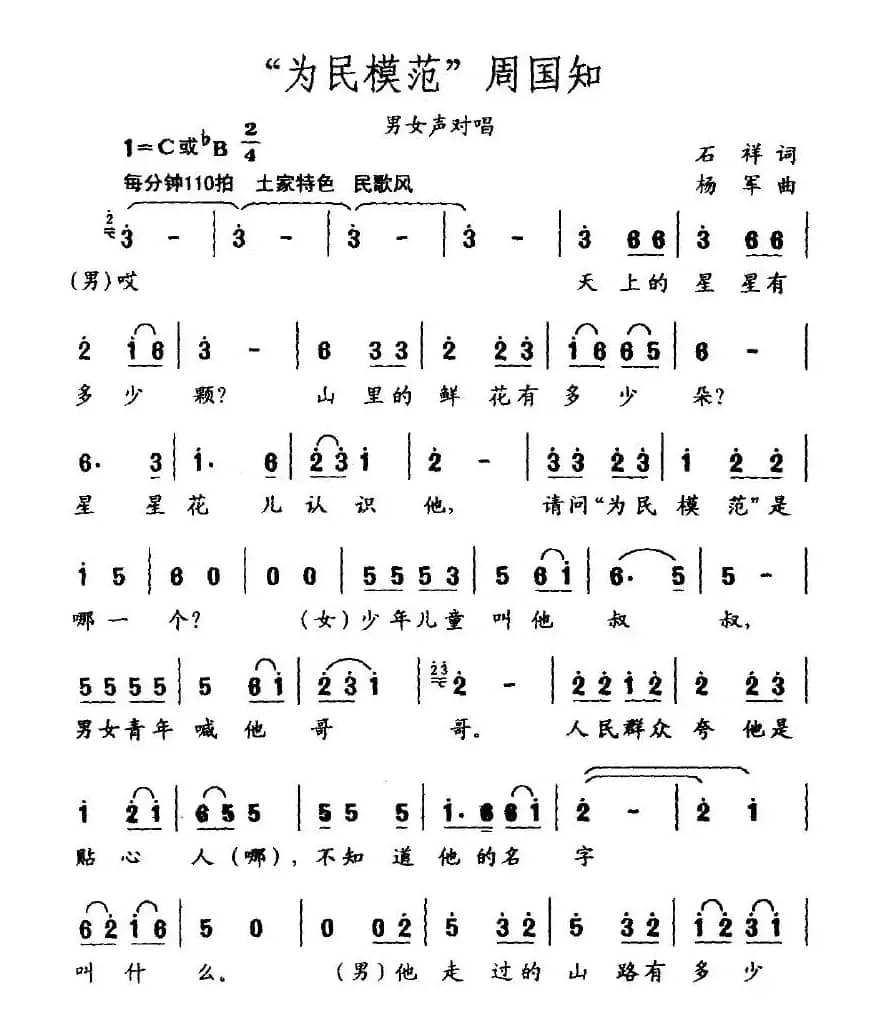 “为民模范”周国知
男女声对唱
1=C或♭B 2/4
石 祥 词
每分钟110拍 土家特色 民歌风
杨 军 曲
(男)哎 天上的星星有
多少颗? 山里的鲜花有多少朵?
星星花儿认识他, 请问“为民模范”是
哪一个? (女)少年儿童叫他叔叔,
男女青年喊他哥哥。人民群众夸他是
贴心人(哪), 不知道他的名字
叫什么。 (男)他走过的山路有多少